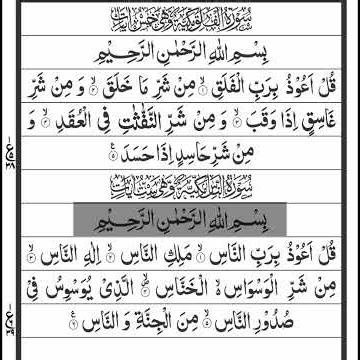 سُوْرَةُ الْفَلَقِ مَدَنِيَّةٌ وَّهِيَ خَمْسُ اٰيَاتٍ
بِسْمِ اللهِ الرَّحْمٰنِ الرَّحِيْمِ
قُلْ اَعُوْذُ بِرَبِّ الْفَلَقِ ۙ۱ مِنْ شَرِّ مَا خَلَقَ ۙ۲ وَ مِنْ شَرِّ
غَاسِقٍ اِذَا وَقَبَ ۙ۳ وَ مِنْ شَرِّ النَّفّٰثٰتِ فِي الْعُقَدِ ۙ۴ وَ
مِنْ شَرِّ حَاسِدٍ اِذَا حَسَدَ ۵
سُوْرَةُ النَّاسِ وَّهِيَ سِتُّ اٰيَاتٍ
بِسْمِ اللهِ الرَّحْمٰنِ الرَّحِيْمِ
قُلْ اَعُوْذُ بِرَبِّ النَّاسِ ۙ۱ مَلِكِ النَّاسِ ۙ۲ اِلٰهِ النَّاسِ ۙ۳
مِنْ شَرِّ الْوَسْوَاسِ ۙ۬ الْخَنَّاسِ ۙ۴ الَّذِيْ يُوَسْوِسُ فِيْ
صُدُوْرِ النَّاسِ ۙ۵ مِنَ الْجِنَّةِ وَ النَّاسِ ۶